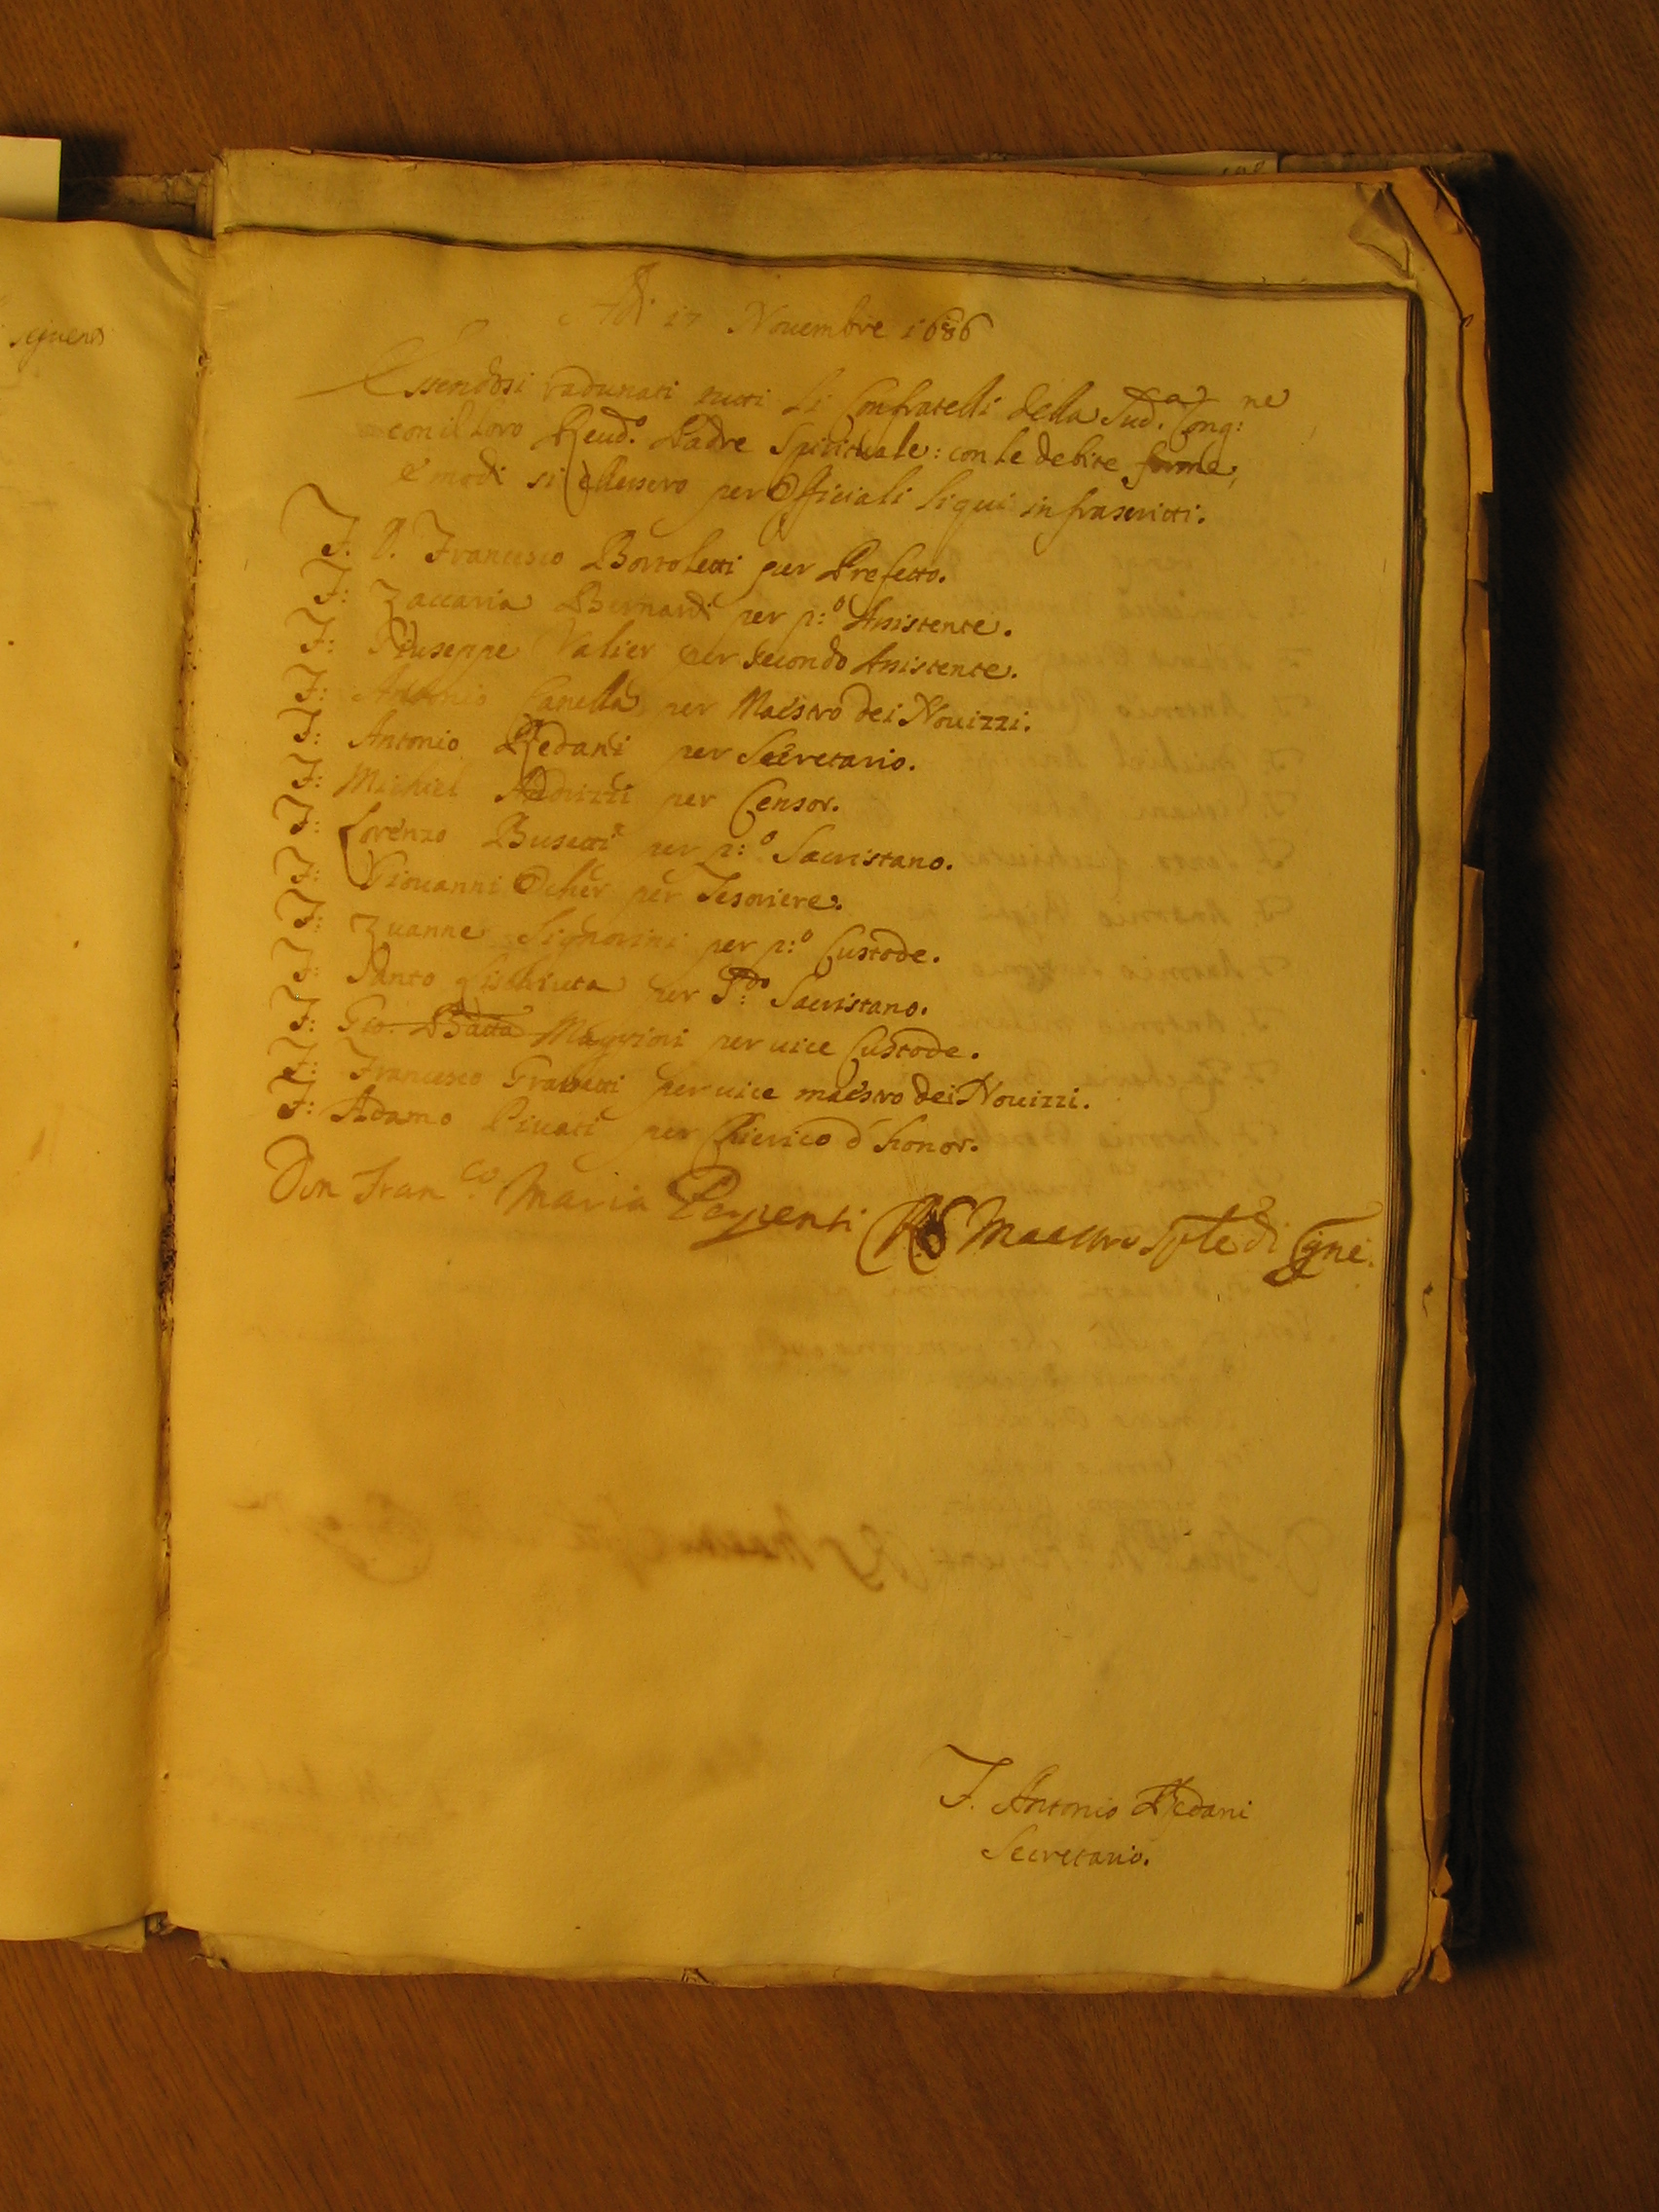 seguenti
Adi 17 Nouembre 1686
Essendosi radunati tutti li Confratelli della Sud.a Cong:ne
con il loro Reud.o Padre Spirituale: con le debite forme,
e modi si ellessero per Officiali li qui infrascritti.
F. D. Francesco Bortoletti per Prefetto.
F: Zaccaria Bernardi per p:o Assistente.
F: Giuseppe Valier per secondo Assistente.
F: Antonio Canella per Maestro dei Nouizzi.
F: Antonio Redani per Secretario.
F: Michiel Andrizzi per Censor.
F: Lorenzo Busetti per p:o Sacristano.
F: Giouanni Ocher per Tesoriere.
F: Zuanne Signorini per p:o Custode.
F: Santo per S:do Sacristano.
F: Gio. Batta Magrini per uice Custode.
F: Francesco Grassetti per uice maestro dei Nouizzi.
F: Adamo Piuati per Chierico d'honor.
Don Fran.co Maria Maestro Sple di Cgne.
F. Antonio Redani
Secretario.